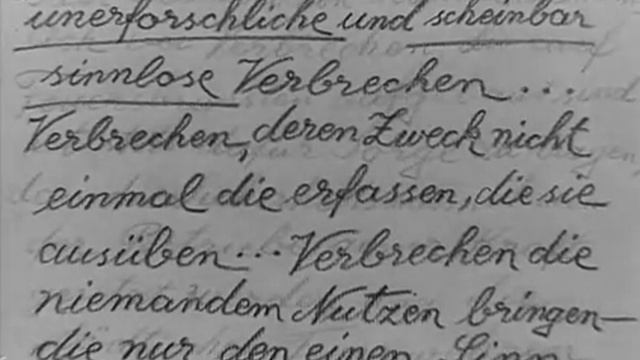 unerforschliche und scheinbar
sinnlose Verbrechen...
Verbrechen, deren Zweck nicht
einmal die erfassen, die sie
ausüben... Verbrechen die
niemandem Nutzen bringen—
die nur den einen Sinn